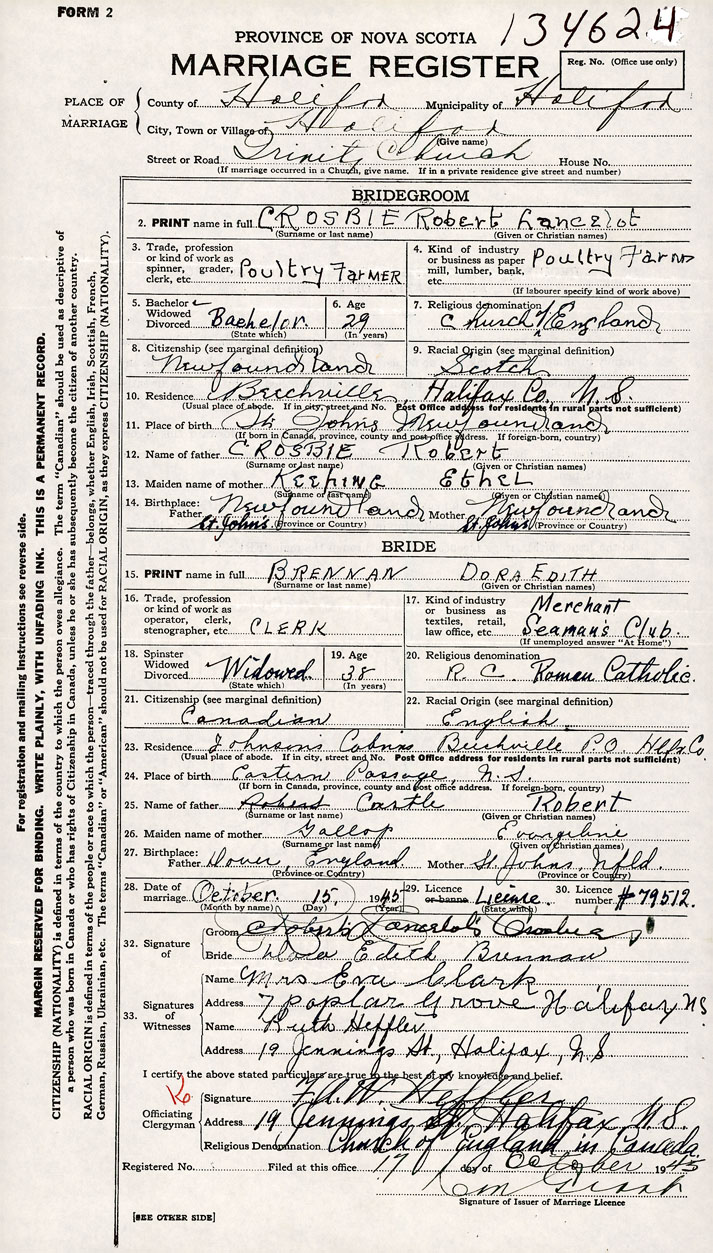 FORM 2
134624
PROVINCE OF NOVA SCOTIA
MARRIAGE REGISTER
Reg. No. (Office use only)
PLACE OF MARRIAGE
County of Halifax Municipality of Halifax
City, Town or Village of Halifax
(Give name)
Street or Road Trinity Church House No.
(If marriage occurred in a Church, give name. If in a private residence give street and number)
BRIDEGROOM
2. PRINT name in full CROSBIE Robert Lancelot
(Surname or last name) (Given or Christian names)
3. Trade, profession or kind of work as spinner, grader, clerk, etc. Poultry Farmer
4. Kind of industry or business as paper mill, lumber, bank, etc. Poultry Farm
(If labourer specify kind of work above)
5. Bachelor Widowed Divorced Bachelor (State which)
6. Age 29 (In years)
7. Religious denomination Church of England
8. Citizenship (see marginal definition) Newfoundland
9. Racial Origin (see marginal definition) Scotch
10. Residence Beechville, Halifax Co. N.S.
(Usual place of abode. If in city, street and No. Post Office address for residents in rural parts not sufficient)
11. Place of birth St Johns Newfoundland
(If born in Canada, province, county and post office address. If foreign-born, country)
12. Name of father CROSBIE Robert
(Surname or last name) (Given or Christian names)
13. Maiden name of mother KEEPING ETHEL
(Surname or last name) (Given or Christian names)
14. Birthplace: Father Newfoundland St. John's (Province or Country) Mother Newfoundland St. John's (Province or Country)
BRIDE
15. PRINT name in full BRENNAN DORA EDITH
(Surname or last name) (Given or Christian names)
16. Trade, profession or kind of work as operator, clerk, stenographer, etc. CLERK
17. Kind of industry or business as textiles, retail, law office, etc. Merchant Seaman's Club.
(If unemployed answer "At Home")
18. Spinster Widowed Divorced Widowed (State which)
19. Age 38 (In years)
20. Religious denomination R. C. Roman Catholic.
21. Citizenship (see marginal definition) Canadian
22. Racial Origin (see marginal definition) English
23. Residence Johnsons Cabins Beechville P.O. Hlfx. Co.
(Usual place of abode. If in city, street and No. Post Office address for residents in rural parts not sufficient)
24. Place of birth Eastern Passage, N.S.
(If born in Canada, province, county and post office address. If foreign-born, country)
25. Name of father Castle Robert
(Surname or last name) (Given or Christian names)
26. Maiden name of mother Gallop Evangeline
(Surname or last name) (Given or Christian names)
27. Birthplace: Father Dover, England (Province or Country) Mother St. Johns, Nfld. (Province or Country)
28. Date of marriage October 15, 1945 (Month by name) (Day) (Year)
29. Licence or banns License. (State which)
30. Licence number. #79512.
32. Signature of
Groom Robert Lancelot Crosbie
Bride Dora Edith Brennan
33. Signatures of Witnesses
Name Mrs Eva Clark
Address 7 Poplar Grove Halifax NS
Name Ruth Heffler
Address 19 Jennings St, Halifax, N.S
I certify the above stated particulars are true to the best of my knowledge and belief.
Officiating Clergyman
Signature Heffler
Address 19 Jennings St. Halifax N.S.
Religious Denomination Church of England in Canada
Registered No. Filed at this office 17 day of October 1945
Signature of Issuer of Marriage Licence
[SEE OTHER SIDE]
For registration and mailing instructions see reverse side.
MARGIN RESERVED FOR BINDING. WRITE PLAINLY, WITH UNFADING INK. THIS IS A PERMANENT RECORD.
CITIZENSHIP (NATIONALITY) is defined in terms of the country to which the person owes allegiance. The term "Canadian" should be used as descriptive of
a person who was born in Canada or who has rights of Citizenship in Canada, unless he or she has subsequently become the citizen of another country.
RACIAL ORIGIN is defined in terms of the people or race to which the person—traced through the father—belongs, whether English, Irish, Scottish, French,
German, Russian, Ukrainian, etc. The terms "Canadian" or "American" should not be used for RACIAL ORIGIN, as they express CITIZENSHIP (NATIONALITY).